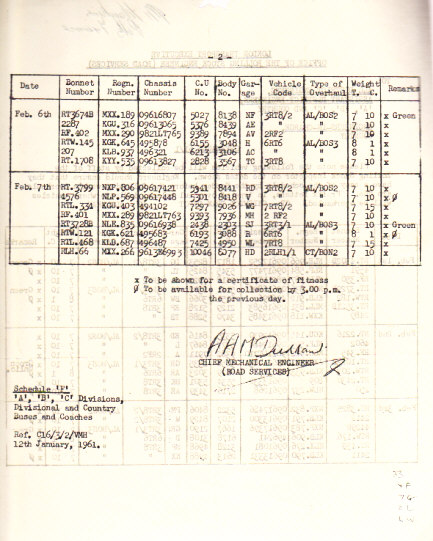 - 2 -
Date Bonnet Number Regn. Number Chassis Number C.U No. Body No. Gar- age Vehicle Code Type of Overhaul Weight T. C. Remarks
Feb. 6th RT3674B MXX.189 09616807 5027 8138 NF 3RT8/2 AL/BOS2 7 10 x Green
2287 KGU.316 5376 8439 AE " " 7 10 x
RF.402 MXX.290 9821LT765 9389 7894 AV 2RF2 " 7 10 x
RTW.145 KGK.645 495878 6155 3048 H 6RT6 AL/BOS3 8 1 x
207 KLB.937 496321 6213 3106 AC " " 8 1 x
RT.1708 KYY.535 09613827 2828 3567 TC 3RT8 " 7 10 x
Feb. 7th RT.3799 NXP.806 09617421 8441 RD 3RT8/2 AL/BOS2 7 10 x
4576 NLP.569 09617448 5301 8418 V " " 7 10 x Ø
RTL.334 KGU.403 494102 7297 5026 WG 7RT8/2 " 7 15 x
RF.401 MXX.289 9821LT763 9393 7936 MH 2 RF2 " 7 10 x
RT3728B NLE.835 09616938 2438 2303 SJ 3RT3/1 AL/BOS3 7 10 x Green
RTW.121 KGK.621 495683 6193 3088 R 6RT6 " 8 1 x Ø
RTL.468 KLB.687 496487 7425 4950 WL 7RT8 " 7 15 x
RLH.66 MXX.266 10046 6077 HD 2RLH1/1 CT/BON2 7 10 x
x To be shown for a certificate of fitness
Ø To be available for collection by 3.00 p.m.
the previous day.
CHIEF MECHANICAL ENGINEER
(ROAD SERVICES)
Schedule 'F'
'A', 'B', 'C' Divisions,
Divisional and Country
Buses and Coaches
Ref. C16/3/2/VMH
12th January, 1961.